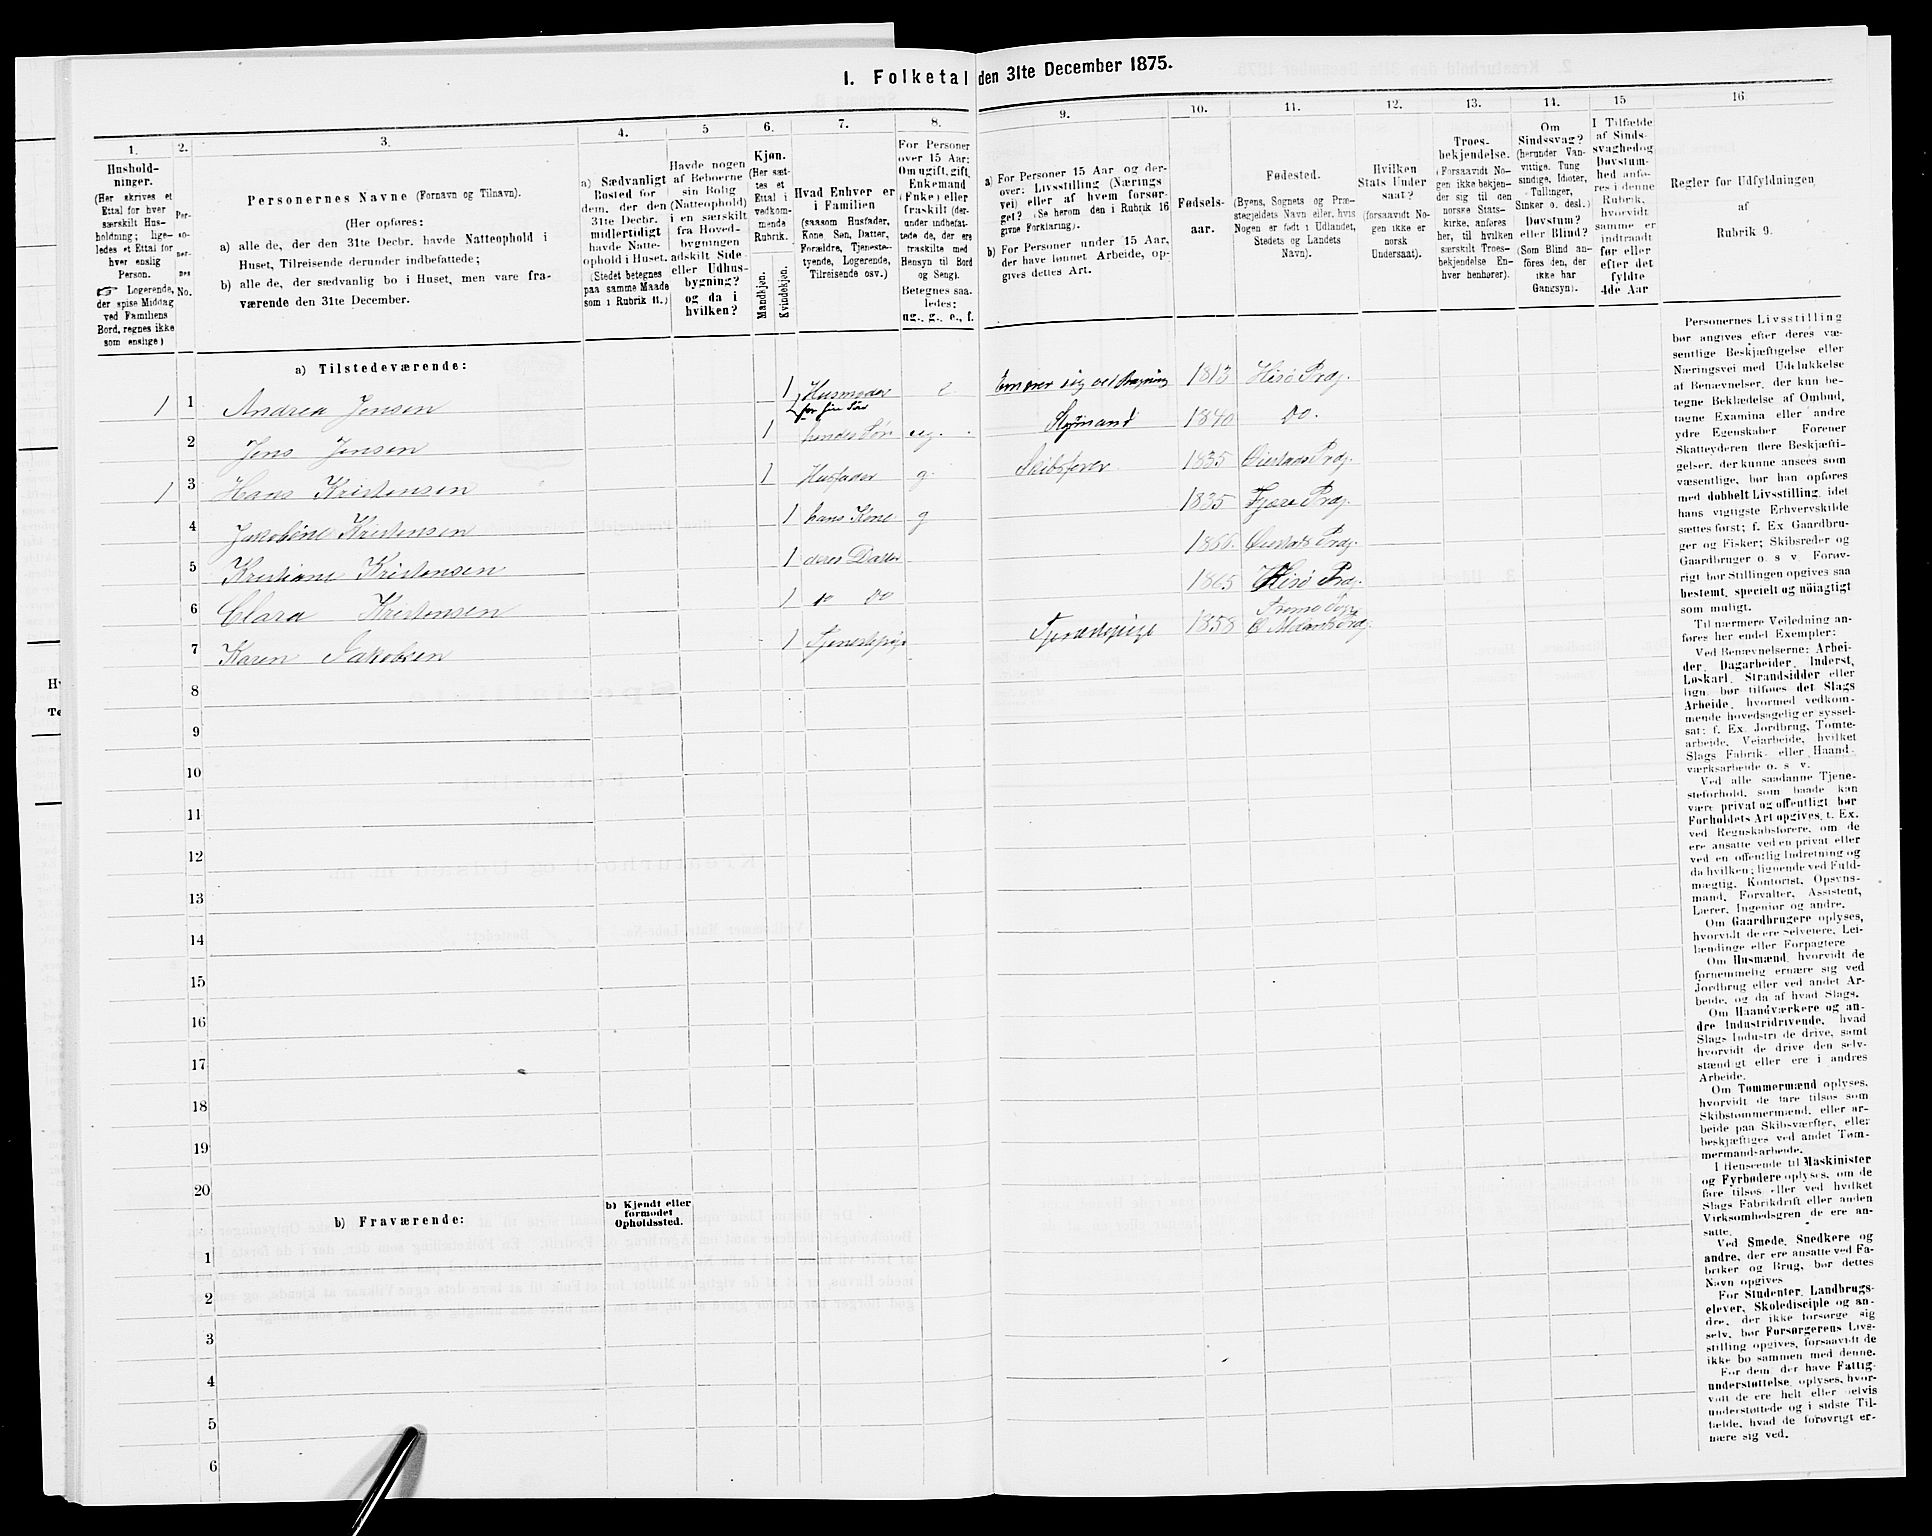 1. Folketal den 31te December 1875.
1.
Hushold-
ninger.
(Her skrives et
Ettal for hver
særskilt Hus-
holdning; lige-
ledes et Ettal for
hver enslig
Person.
☞ Logerende,
der spise Middag
ved Familiens
Bord, regnes ikke
som enslige)
2.
Per-
so-
ner-
nes
No.
3.
Personernes Navne (Fornavn og Tilnavn).
(Her opføres:
a) alle de, der den 31te Decbr. havde Natteophold i
Huset, Tilreisende derunder indbefattede;
b) alle de, der sædvanlig bo i Huset, men vare fra-
værende den 31te December.
4.
a) Sædvanligt
Bosted for
dem, der den
31te Decbr.
midlertidigt
havde Natte-
ophold i Huset.
(Stedet betegnes
paa samme Maade
som i Rubrik 11.)
5
Havde nogen
af Beboerne
sin Bolig
(Natteophold)
i en særskilt
fra Hoved-
bygningen
adskilt Side-
eller Udhus-
bygning?
og da i
hvilken?
6.
Kjøn.
(Her sæt-
tes et
Ettal i
vedkom-
mende
Rubrik.
Mandkjøn.
Kvindekjøn.
7.
Hvad Enhver er
i Familien
(saasom Husfader,
Kone Søn, Datter,
Forældre, Tjeneste-
tyende, Logerende,
Tilreisende osv.)
8.
For Personer
over 15 Aar:
Om ugift, gift,
Enkemand
(Enke) eller
fraskilt (der-
under indbefat-
tede de, der ere
fraskilte med
Hensyn til Bord
og Seng).
Betegnes saa-
ledes:
ug., g., e., f.
9.
a) For Personer 15 Aar og der-
over: Livsstilling (Nærings-
vei) eller af hvem forsør-
get? (Se herom den i Rubrik 16
givne Forklaring).
b) For Personer under 15 Aar,
der have lønnet Arbeide, op-
gives dettes Art.
10.
Fødsels-
aar.
11.
Fødested.
(Byens, Sognets og Præ-
stegjeldets Navn eller, hvis
Nogen er født i Udlandet,
Stedets og Landets
Navn).
12.
Hvilken
Stats Under-
saat?
(forsaavidt No-
gen ikke er
norsk
Undersaat).
13.
Troes-
bekjendelse.
(Forsaavidt No-
gen ikke bekjen-
der sig til den
norske Stats-
kirke, anføres
her, til hvilken
særskilt Troes-
bekjendelse En-
hver henhører).
14.
Om
Sindssvag?
(herunder Van-
vittige, Tung-
sindige, Idioter,
Tullinger,
Sinker o. desl.)
Døvstum?
eller Blind?
(Som Blind an-
føres den, der
ikke har
Gangsyn).
15
I Tilfælde
af Sinds-
svaghed og
Døvstum-
hed anfø-
res i denne
Rubrik,
hvorvidt
samme er
indtraadt
før eller
efter det
fyldte
4de Aar
16.
Regler for Udfyldningen
af
Rubrik 9.
a) Tilstedeværende:
1 1 Andrea Jensen 1 Husmoder for sin Sön e. Ernærer sig ved 1813 Hisö Prdg.
2 Jens Jensen 1 hendes Sön ug. Styrmand 1840 Do.
1 3 Hans Kristensen 1 Husfader g. Skibsfører 1835 Øiestads Prdg.
4 Jakobine Kristensen 1 hans Kone g 1835 Fjære Prdg.
5 Kristiane Kristensen 1 deres Datter 1856. Øiestads Prdg.
6 Clara Kristensen 1 do do 1865 Hisö Prdg.
7 Karen Jakobsen 1 Tjenestepige Tjenestepige 1858 Tromö Sogn Ø Molands Prdg.
8
9
10
11
12
13
14
15
16
17
18
19
20
b) Fraværende:
b) Kjendt eller
formodet
Opholdssted.
1
2
3
4
5
6
Personernes Livsstilling
bør angives efter deres væ-
sentlige Beskjæftigelse eller
Næringsvei med Udelukkelse
af Benævnelser, der kun be-
tegne Beklædelse af Ombud,
tagne Examina eller andre
ydre Egenskaber. Forener
Skatteyderen flere Beskjæfti-
gelser, der kunne ansees som
væsentlige, bør han opføres
med dobbelt Livsstilling, idet
hans vigtigste Erhvervskilde
sættes først; f. Ex Gaardbru-
ger og Fisker; Skibsreder og
Gaardbruger o. s v. Forøv-
rigt bør Stillingen opgives saa
bestemt, specielt og nöiagtigt
som muligt.
Til nærmere Veiledning an-
føres her endel Exempler:
Ved Benævnelserne: Arbei-
der, Dagarbeider, Inderst,
Løskarl, Strandsidder eller
lign. bør tilføies det Slags
Arbeide, hvormed vedkom-
mende hovedsagelig er syssel-
sat; f. Ex. Jordbrug, Tomte-
arbeide, Veiarbeide, hvilket
Slags Fabrik- eller Haand-
værksarbeide o. s. v.
Ved alle saadanne Tjene-
steforhold, som baade kan
være privat og offentligt, bør
Forholdets Art opgives, t. Ex.
ved Regnskabsførere, om de
ere ansatte ved en privat eller
ved en offentlig Indretning og
da hvilken; lignende ved Fuld-
mægtig, Kontorist, Opsyns-
mand, Forvalter, Assistent,
Lærer, Ingeniør og andre.
Om Gaardbrugere oplyses,
hvorvidt de ere Selveiere, Lei-
lændinge eller Forpagtere
Om Husmænd, hvorvidt de
fornemmelig ernære sig ved
Jordbrug eller ved andet Ar-
beide, og da af hvad Slags.
Om Haandværkere og an-
dre Industridrivende, hvad
Slags Industri de drive, samt
hvorvidt de drive den selv-
stændigt eller ere i andres
Arbeide.
Om Tømmermænd oplyses,
hvorvidt de fare tilsøs som
Skibstømmermænd, eller ar-
beide paa Skibsværfter, eller
beskjæftiges ved andet Tøm-
mermandsarbeide.
I Henseende til Maskinister
og Fyrbødere oplyses, om de
fare tilsøs eller ved hvilket
Slags Fabrikdrift eller anden
Virksomhedsgren de ere an-
satte.
Ved Smede, Snedkere og
andre, der ere ansatte ved Fa-
briker og Brug, bør dettes
Navn opgives
For Studenter, Landbrugs-
elever, Skoledisciple og an-
dre, der ikke forsørge sig
selv, bør Forsørgerens Livs-
stilling opgives, forsaavidt de
ikke bo sammen med denne.
For dem, der have Fattig-
understøttelse, oplyses, hvor-
vidt de ere helt eller delvis
understøttede og i sidste Til-
fælde, hvad de forøvrigt er-
nære sig ved.